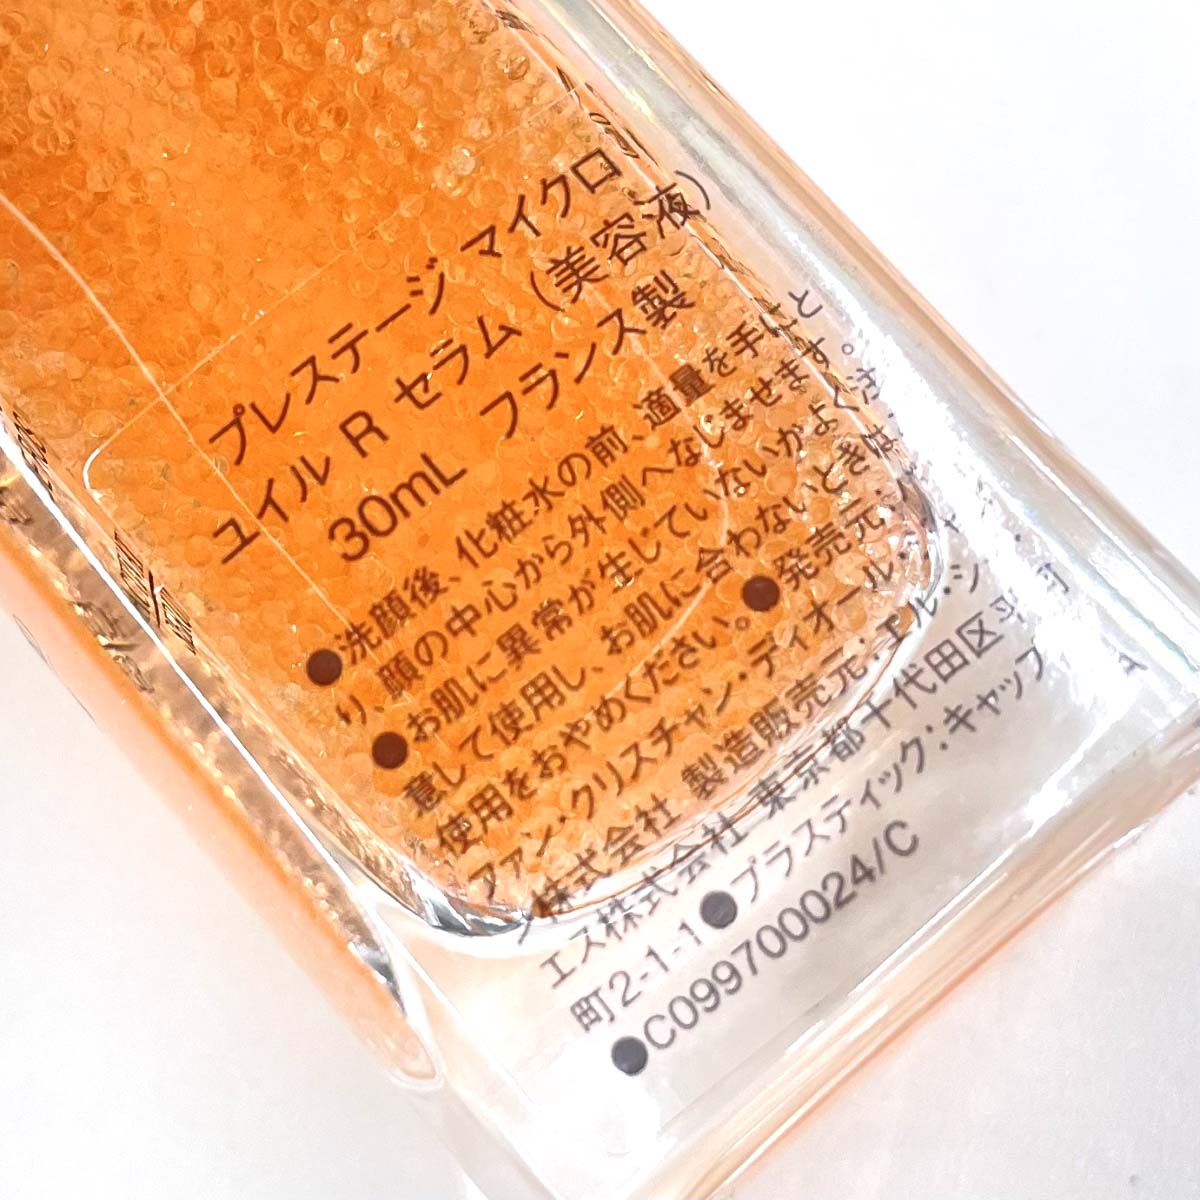 プレステージ マイクロ
ユイル R セラム（美容液）
30mL フランス製
●洗顔後、化粧水の前、適量を手にと
り、顔の中心から外側へなじませます。
●お肌に異常が生じていないかよく注
意して使用し、お肌に合わないときは、
使用をおやめください。●発売元：パル
ファン・クリスチャン・ディオール・ジャポ
ン株式会社 製造販売元：エル・ジー
エス株式会社 東京都千代田区平河
町2-1-1●プラスティック：キャップ
●C099700024/C